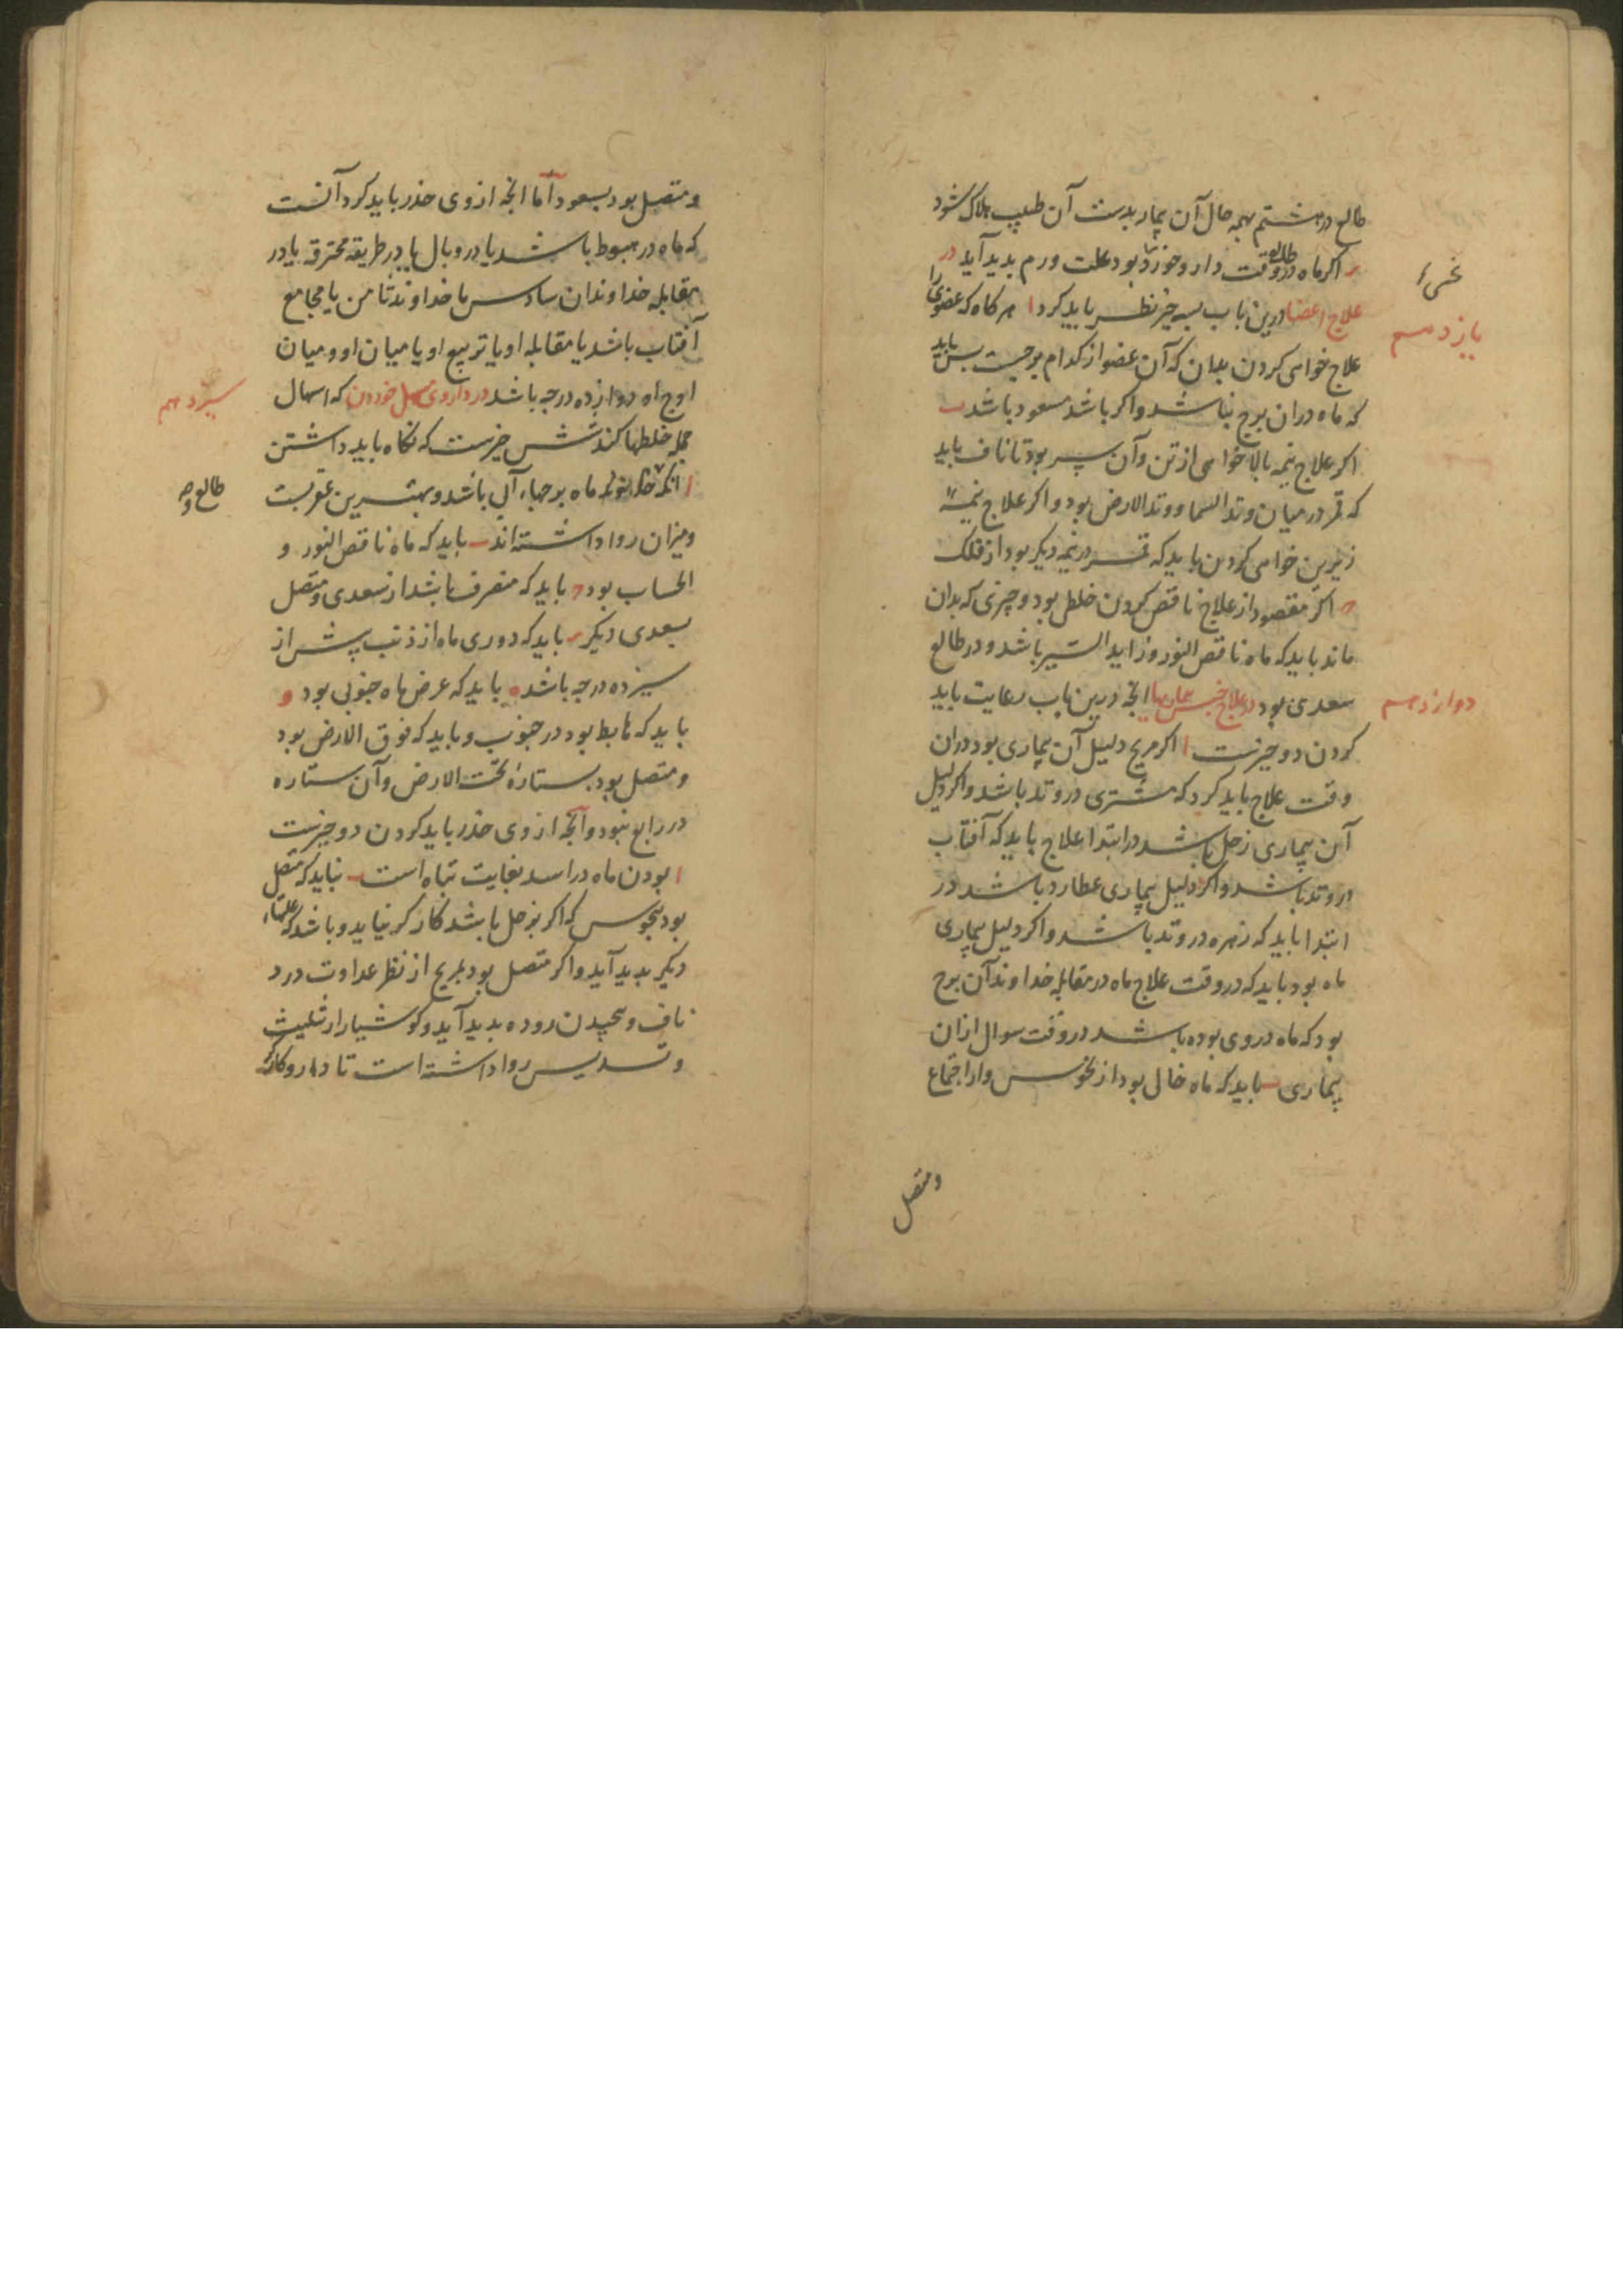 طالع در هشتم بهمه حال آن بیمار بدست آن طبیب هلاک شود
اکر ماه در طالع وقت دارو خوردن بود علت ورم بدید آید در
علاج اعضا درین باب بسه چیز نظر باید کرد ا هرکاه که عضوی را
یازدهم
علاج خواهی کردن بدان که آن عضو از کدام برجست بس باید
که ماه دران برج نباشد و اکر باشد مسعود باشد ب
اکر علاج نیمه بالا خواهی از تن و آن سر بود تا ناف باید
که قمر در میان وتد السما و وتد الارض بود و اکر علاج نیمه
زیرین خواهی کردن باید که قمر در نیمه دیکر بود از فلک
ج اکر مقصود از علاج ناقص کردن خلطی بود و چیزی که بدان
ماند باید که ماه ناقص النور و زاید السیر باشد و در طالع
سعدی بود در علاج جنس بیماریها انچه درین باب رعایت باید
دوازدهم
کردن دو چیزست ا اکر مریخ دلیل آن بیماری بود دران
وقت علاج باید کرد که مشتری در وتد باشد و اکر دلیل
آن بیماری زحل باشد در ابتدا علاج باید که آفتاب
در وتد باشد و اکر دلیل بیماری عطارد باشد در
ابتدا باید که زهره در وتد باشد و اکر دلیل بیماری
ماه بود باید که در وقت علاج ماه در مقابله خداوند آن برج
بود که ماه در وی بوده باشد در وقت سوال ازان
بیماری ب باید که ماه خالی بود از نحوس و از اجتماع
و متصل
و متصل بود بسعود اما انچه از وی حذر باید کرد آنست
که ماه در هبوط باشد یا در وبال یا در طریقه محترقه یا در
مقابله خداوندان سادس یا خداوند ثامن یا مجامع
آفتاب باشد یا مقابله او یا تربیع او یا میان او و میان
اوج او دوازده درجه باشد در داروی مسهل خوردن که اسهال
سیزدهم
جمله خلطها کند شش چیزست که نکاه باید داشتن
ا انکه ماه برجهاء آبی باشد و بهترین عقربست
طالع و
و میزان روا داشته‌اند ب باید که ماه ناقص النور و
الحساب بود ج باید که منصرف باشد از سعدی و متصل
بسعدی دیکر د باید که دوری ماه از ذنب بیش از
سیزده درجه باشد ه باید که عرض ماه جنوبی بود و
باید که هابط بود در جنوب و باید که فوق الارض بود
و متصل بود بستارهٔ تحت الارض و آن ستاره
در رابع نبود و آنچه از وی حذر باید کردن دو چیزست
ا بودن ماه در اسد بغایت تباه است ب نباید که متصل
بود بنحوس که اکر بزحل باشد کارکر نیاید و باشد که علتهاء
دیکر بدید آید و اکر متصل بود بمریخ از نظر عداوت درد
ناف و بیچیدن روده بدید آید و کوشیار از تثلیث
و تسدیس روا داشته است تا دارو کارکر